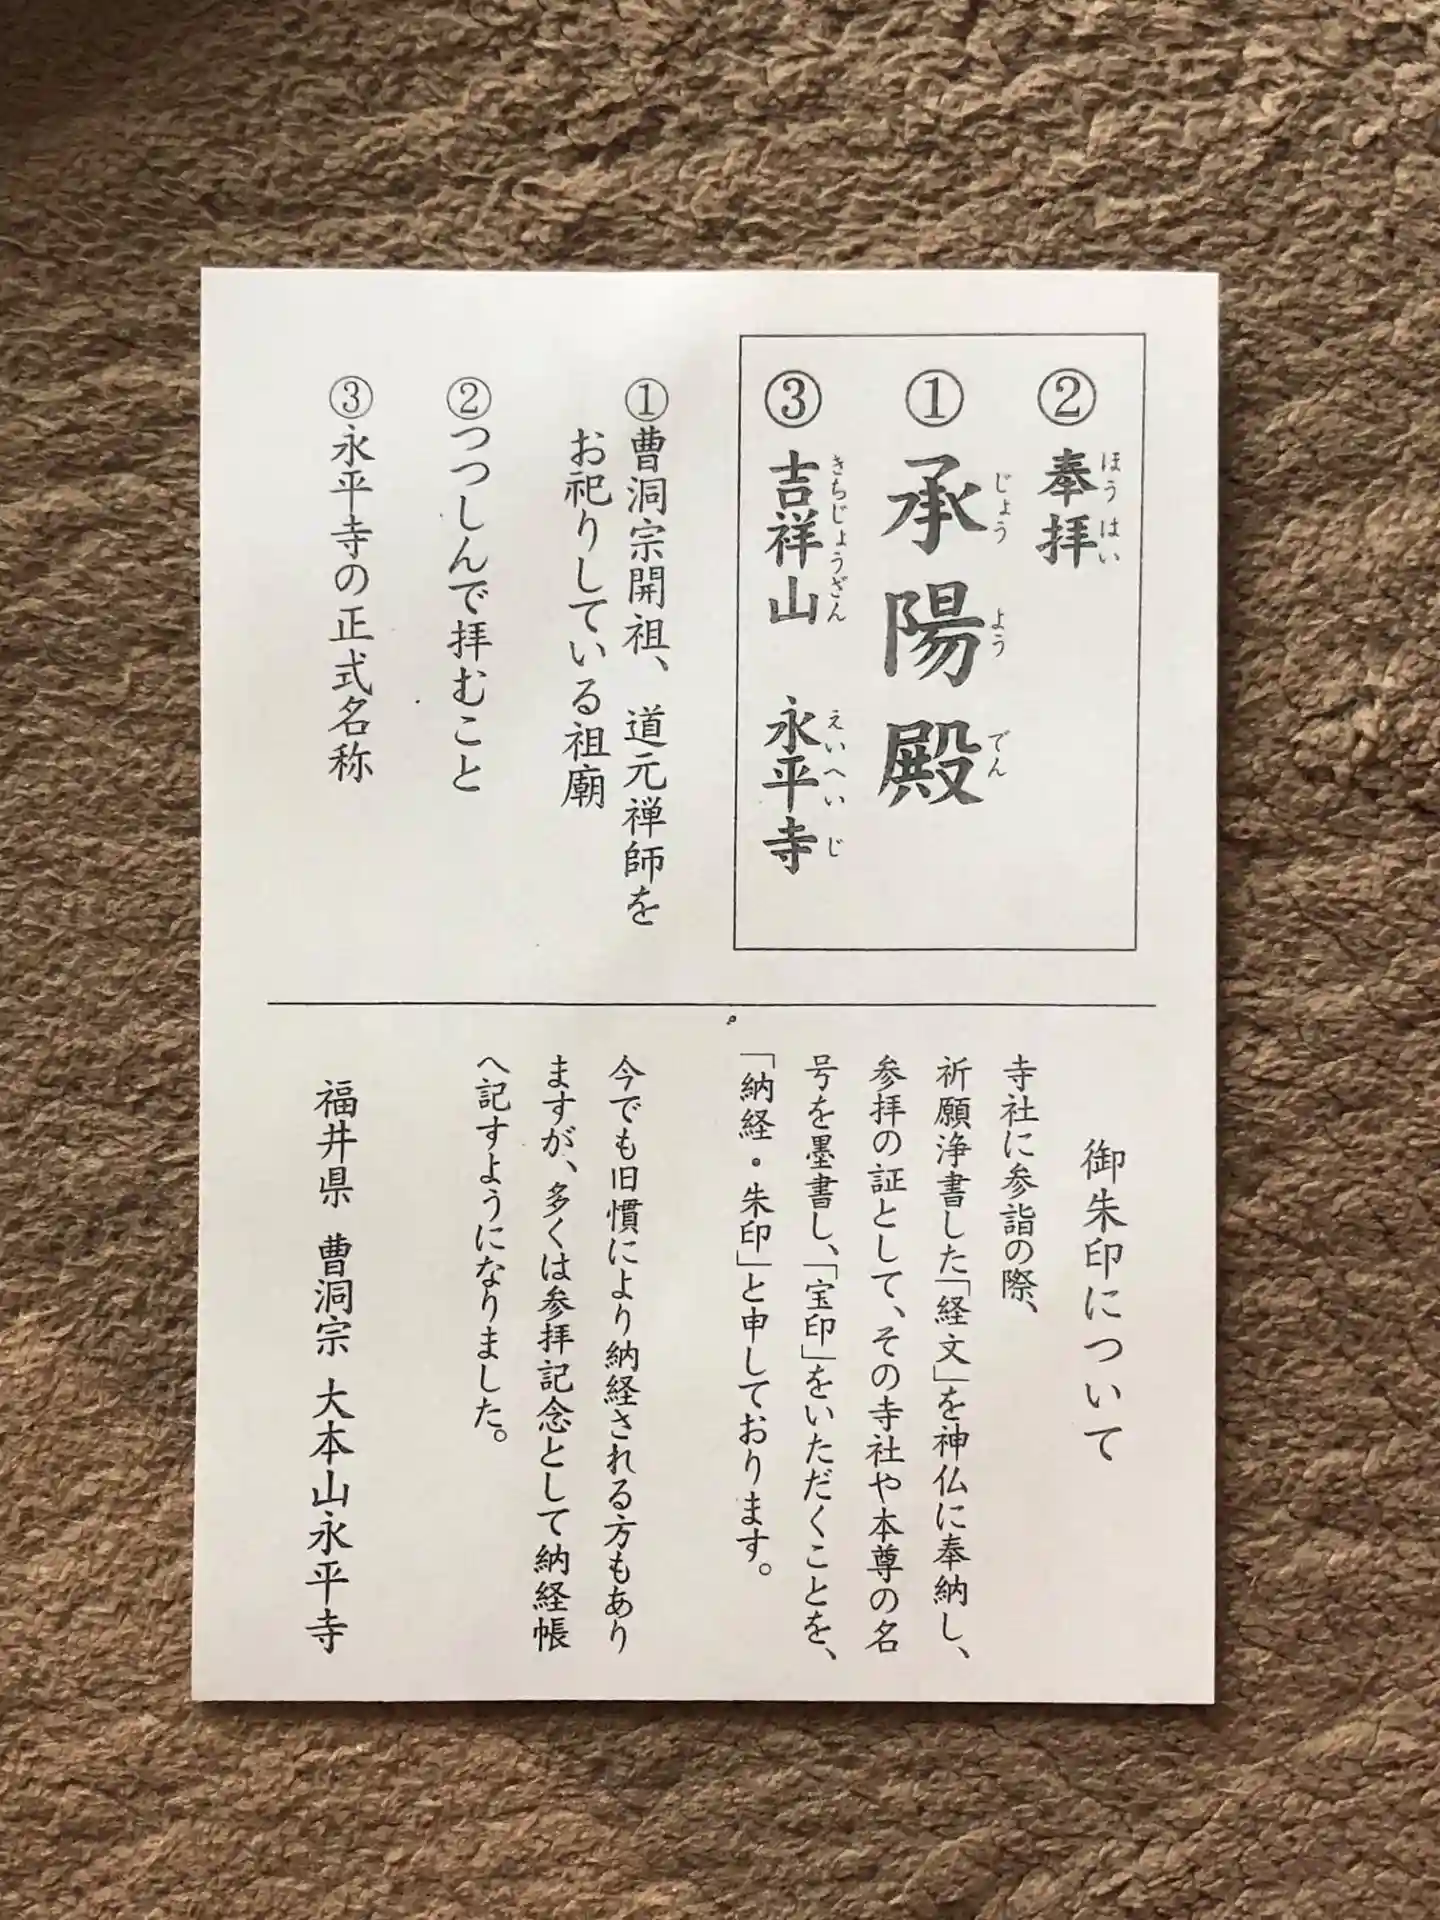 ②奉拝
ほうはい
①承陽殿
じょうようでん
③吉祥山 永平寺
きちじょうざん えいへいじ
①曹洞宗開祖、道元禅師を
お祀りしている祖廟
②つつしんで拝むこと
③永平寺の正式名称
御朱印について
寺社に参詣の際、
祈願浄書した「経文」を神仏に奉納し、
参拝の証として、その寺社や本尊の名
号を墨書し、「宝印」をいただくことを、
「納経・朱印」と申しております。
今でも旧慣により納経される方もあり
ますが、多くは参拝記念として納経帳
へ記すようになりました。
福井県 曹洞宗 大本山永平寺